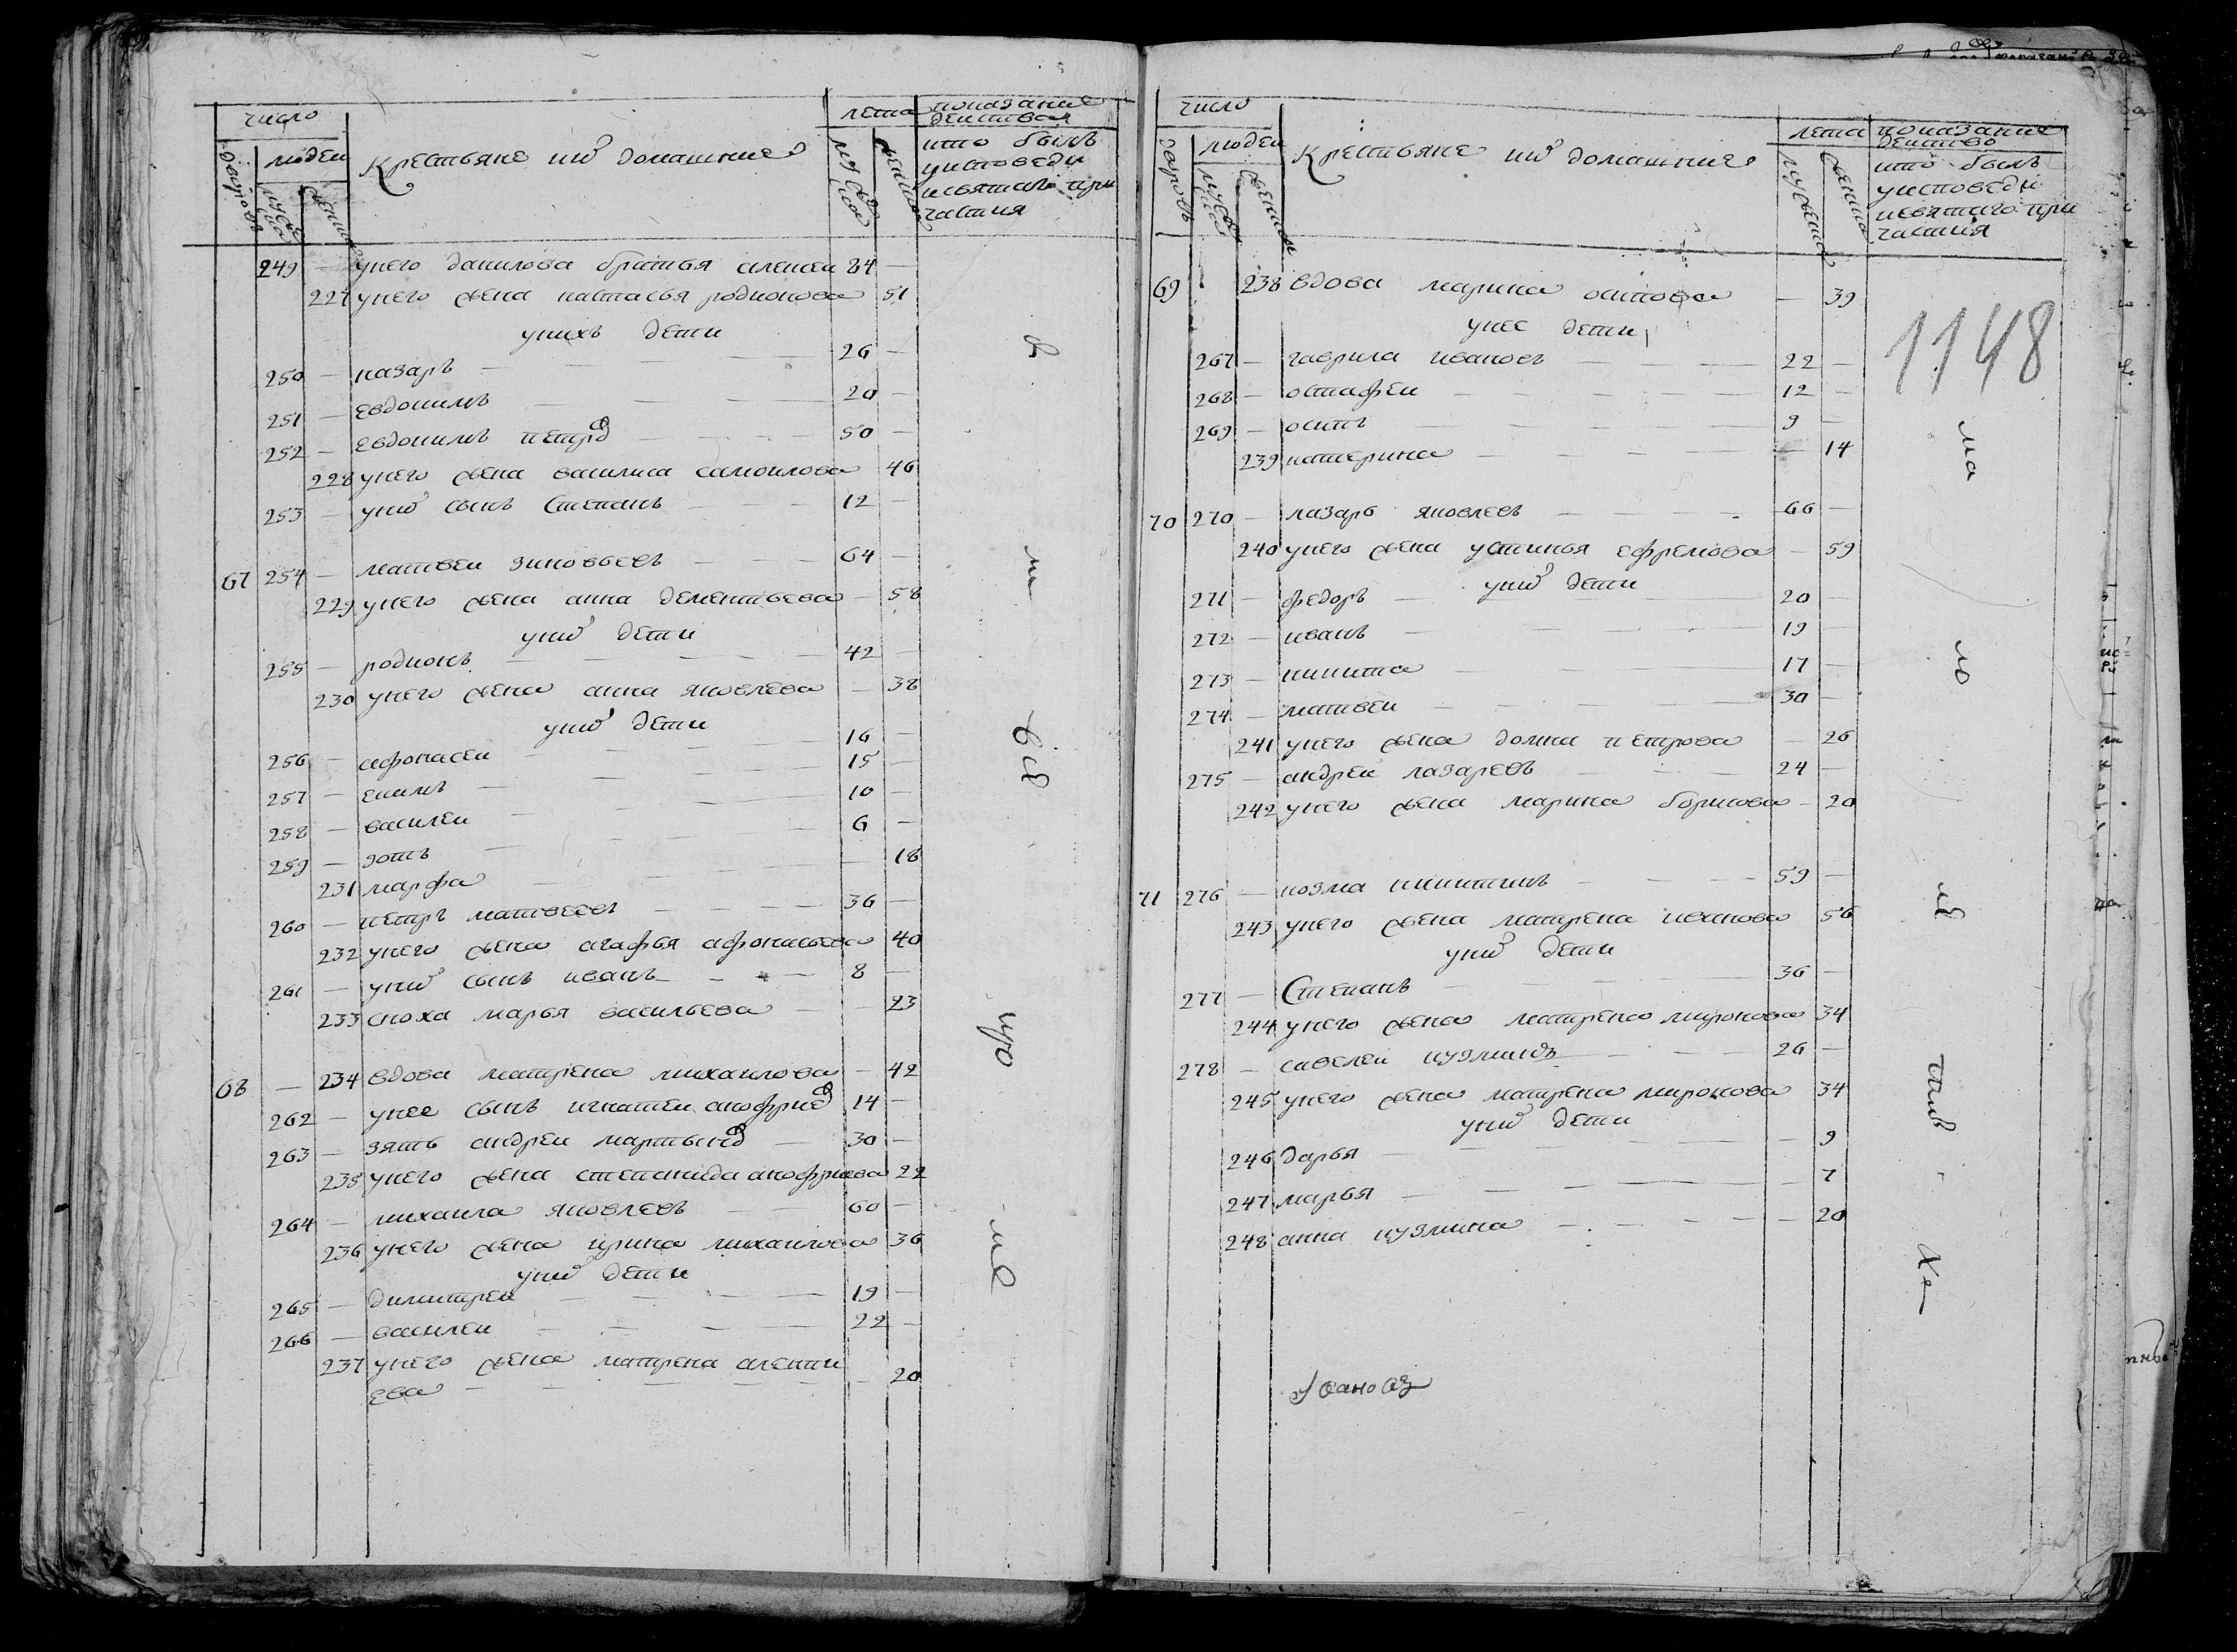 число
людей
дворовъ
мужеска
женска
Крестьяне и ихъ домашние
лета
мужеска
женска
показание действа
кто былъ
у исповеди
и святаго при
частия
249 — у него данилова братья алексеи 84 —
227 у него жена настасья родионова 51
у нихъ дети
250 — назаръ 26 —
251 — евдокимъ 20 —
252 — евдокимъ петровъ 50 —
228 у него жена василиса самоилова 46
253 — у них сынъ Степанъ 12 —
67 254 — матвеи зиновьевъ 64 —
229 у него жена анна дементьева — 58
у них дети
255 — родионъ 42 —
230 у него жена анна яковлева — 38
у них дети
256 — афонасеи 16 —
257 — екимъ 15 —
258 — василеи 10 —
259 — зотъ 6 —
231 марфа — 18
260 — петръ матвеевъ 36 —
232 у него жена агафья афонасьева 40
261 — у них сынъ иванъ 8 —
233 сноха марья васильева — 23
68 — 234 вдова матрена михаилова — 42
262 — у нее сынъ игнатеи анофриевъ 14 —
263 — зять андреи мартыновъ 30 —
235 у него жена степанида анофриева 22
264 — михаила яковлевъ 60 —
236 у него жена ирина михаилова 36
у них дети
265 — димитреи 19 —
266 — василеи 22 —
237 у него жена матрена алекси
ева — 20
число
людей
дворовъ
мужеска
женска
Крестьяне и ихъ домашние
лета
мужеска
женска
показание действо
кто былъ
у исповеди
и святаго при
частия
1148
69 238 вдова марина осипова — 39
у нее дети
267 — гаврила ивановъ 22 —
268 — остафеи 12 —
269 — осипъ 9 —
239 катерина — 14
70 270 — лазарь яковлевъ 66 —
240 у него жена устинья ефремова — 59
у них дети
271 — федоръ 20 —
272 — иванъ 19 —
273 — никита 17 —
274 — матвеи 30 —
241 у него жена домна петрова — 26
275 — андреи лазаревъ 24 —
242 у него жена марина борисова — 20
71 276 — козма никитинъ 59 —
243 у него жена матрена иванова 56
у них дети
277 — Степанъ 36 —
244 у него жена матрена миронова 34
278 — савелеи кузминъ 26 —
245 у него жена матрена миронова 34
у них дети
246 дарья — 9
247 марья — 7
248 анна кузмина — 20
Ивановъ